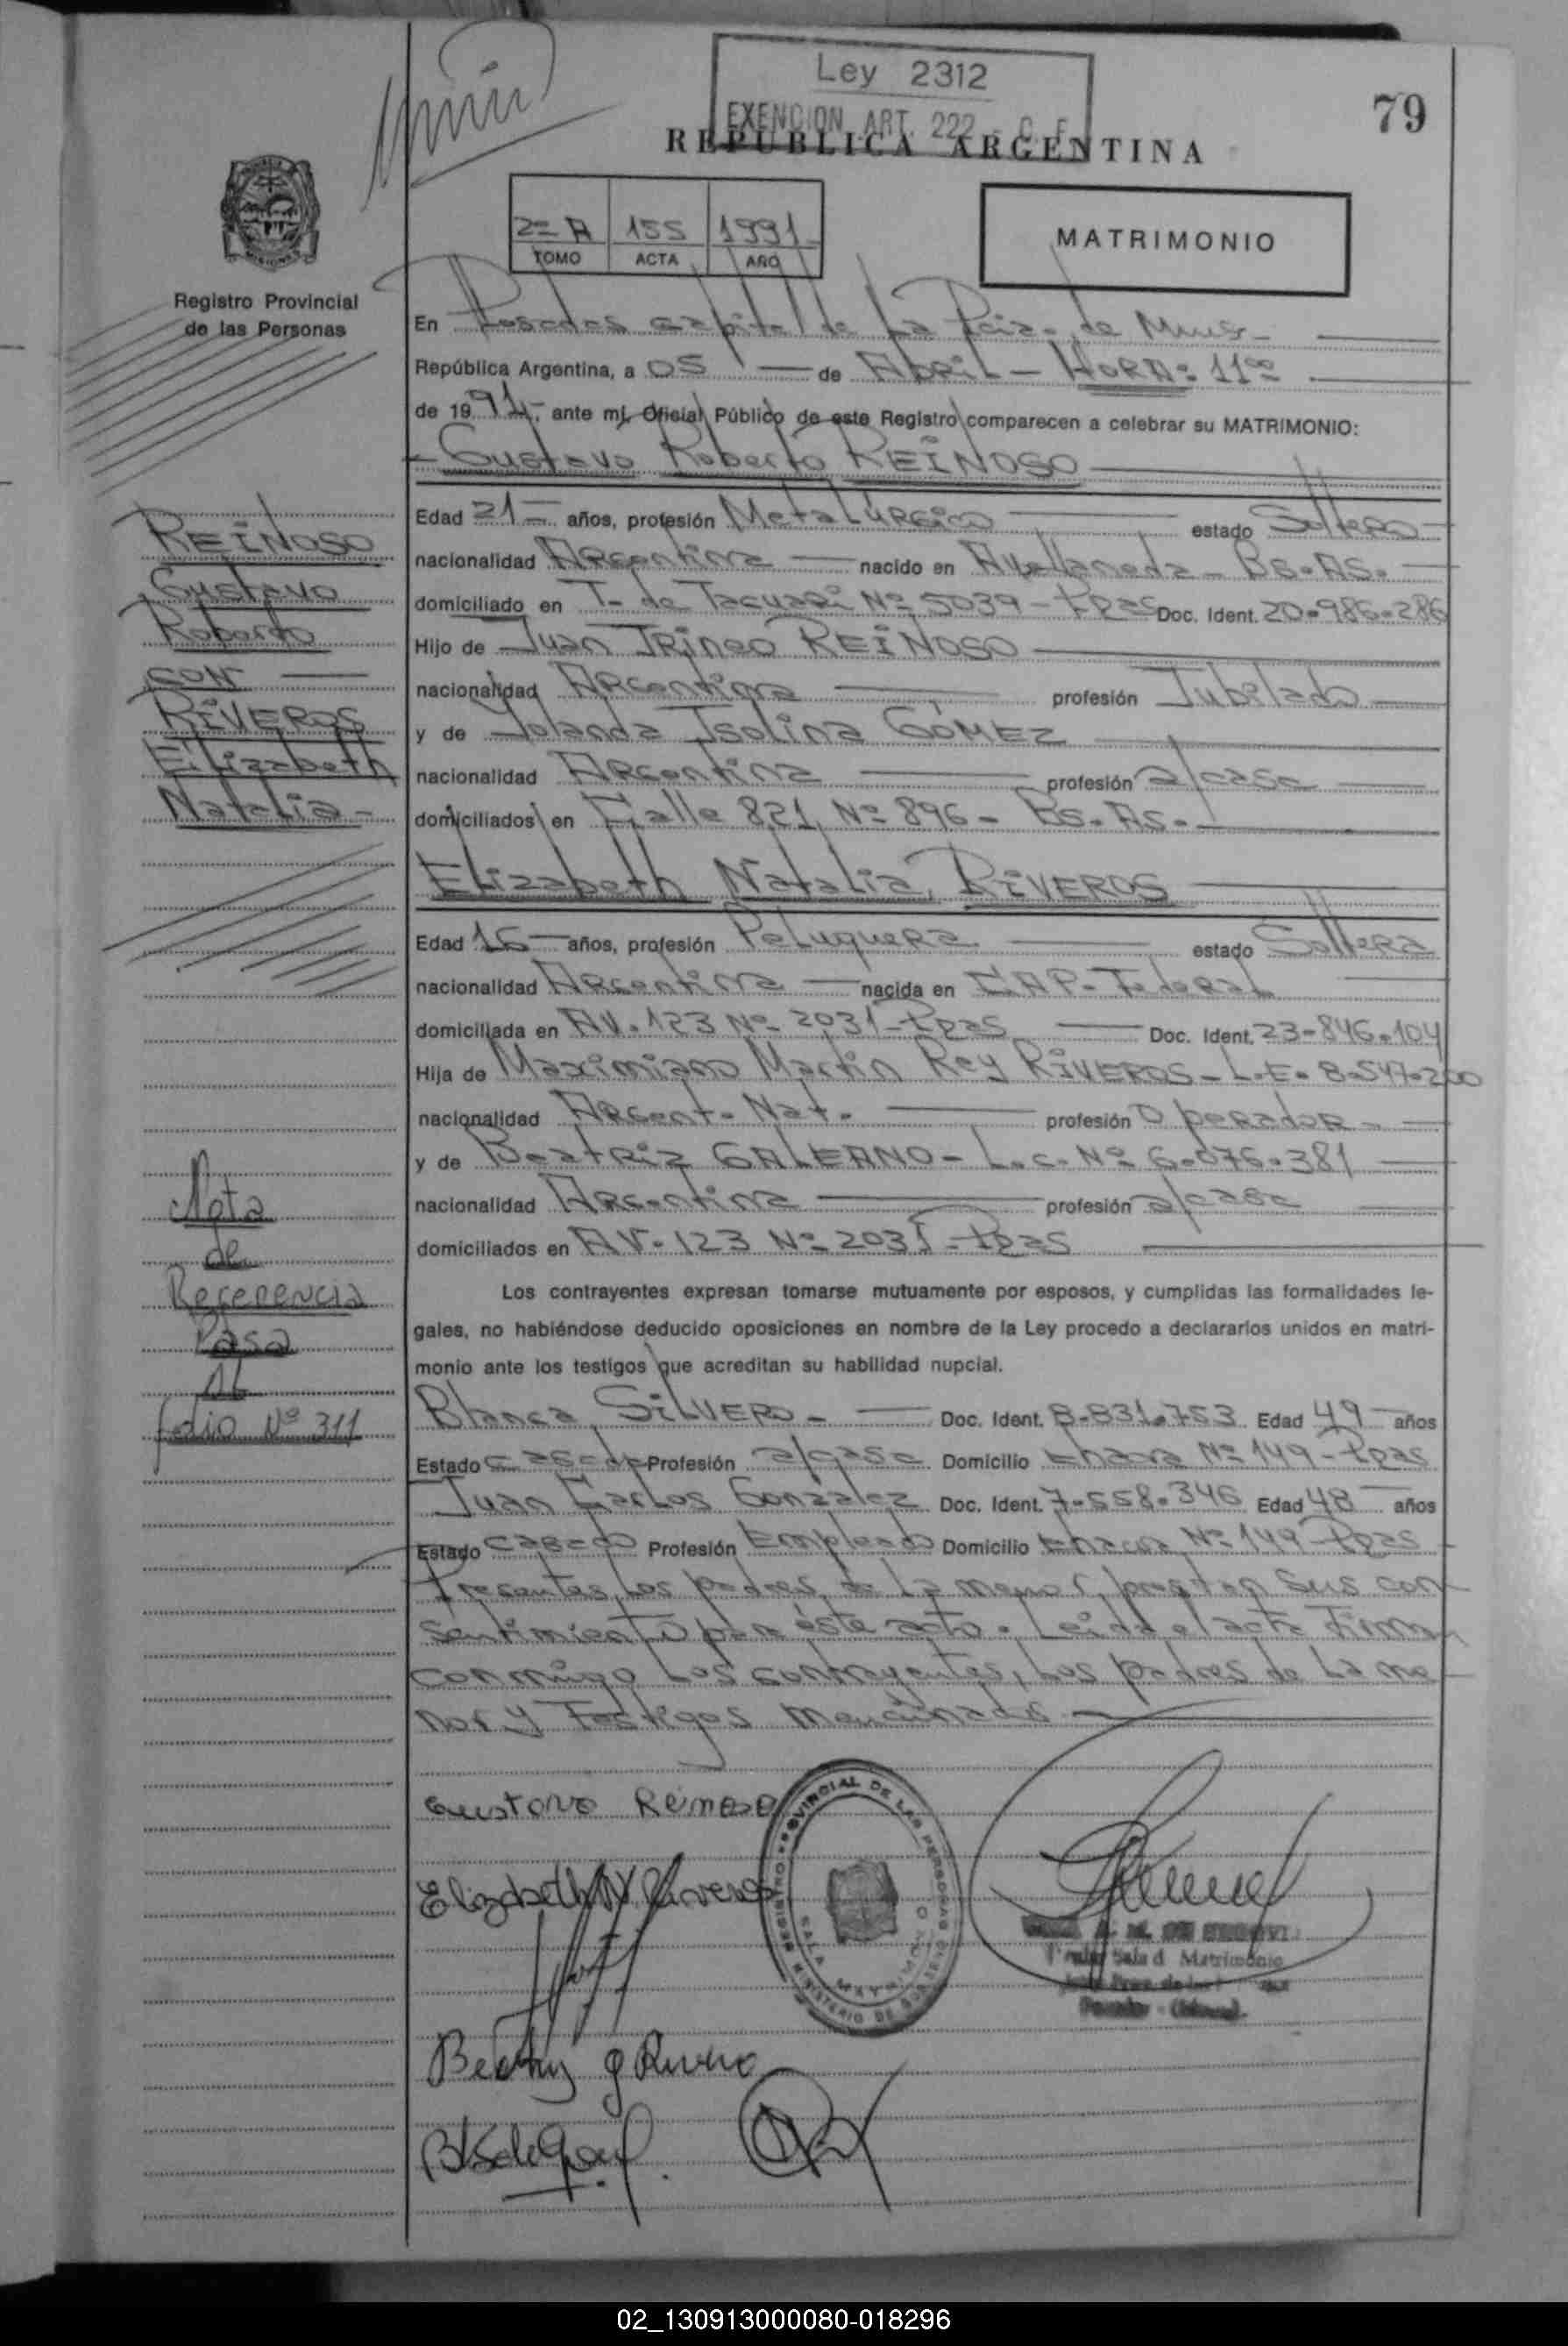 Ley 2312
EXENCION ART. 222 - C. F.
79
REPUBLICA ARGENTINA
2= A 155 1991
TOMO ACTA AÑO
MATRIMONIO
Registro Provincial
de las Personas
En Posadas capital de La Pcia. de Mnes-
República Argentina, a 05 de Abril - HORA: 11oo
de 1991, ante mí, Oficial Público de este Registro comparecen a celebrar su MATRIMONIO:
- Gustavo Roberto REINOSO
REINOSO
Gustavo
Roberto
CON
RIVEROS
Elizabeth
Natalia-
Edad 21 años, profesión Metalúrgico estado Soltero
nacionalidad Argentina nacido en Avellaneda - Bs. As.
domiciliado en T. de Tacuarí Nº 5039 - Ppas Doc. Ident. 20.986.286
Hijo de Juan Irineo REINOSO
nacionalidad Argentina profesión Jubilado
y de Yolanda Isolina GÓMEZ
nacionalidad Argentina profesión a/casa
domiciliados en Calle 821 Nº 896 - Bs. As.
Elizabeth Natalia RIVEROS
Edad 16 años, profesión Peluquera estado Soltera
nacionalidad Argentina nacida en CAP. Federal
domiciliada en AV. 123 Nº 2031 - Ppas Doc. Ident. 23.846.104
Hija de Maximiano Martin Rey RIVEROS - L.E. 8.547.200
nacionalidad Argent. Nat. profesión Operador
y de Beatriz GALEANO - L.C. Nº 6.076.381
nacionalidad Argentina profesión a/casa
domiciliados en AV. 123 Nº 2031 - Ppas
Nota
de
Referencia
Pasa
al
folio Nº 311
Los contrayentes expresan tomarse mutuamente por esposos, y cumplidas las formalidades le-
gales, no habiéndose deducido oposiciones en nombre de la Ley procedo a declararlos unidos en matri-
monio ante los testigos que acreditan su habilidad nupcial.
Blanca SILVERO - Doc. Ident. 8.831.753 Edad 49 años
Estado casada Profesión a/casa Domicilio Chacra Nº 149 - Ppas
Juan Carlos Gonzalez Doc. Ident. 7.558.346 Edad 48 años
Estado casado Profesión Empleado Domicilio Chacra Nº 149 Ppas
Presentes los padres de la menor, prestan sus con
sentimiento para éste acto. Leida el acta Firman
conmigo los contrayentes, los padres de la me
nor y Testigos mencionados
Gustavo Reinoso
Elizabeth N. Riveros
REGISTRO PROVINCIAL DE LAS PERSONAS
MINISTERIO DE
Sala d Matrimonio
Beatriz g Rivero
02_130913000080-018296